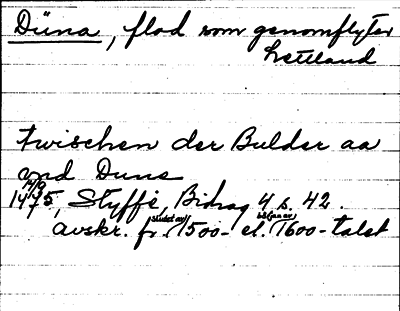 Düna, flod som genomflyter
Lettland
twischen der Bulder aa
vnd Dune
14/9
1475, Styffe, Bidrag 4 s. 42.
avskr. fr. slutet av 1500- el. början av 1600-talet